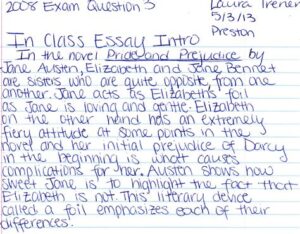 2008 Exam Question 3
Laura Trener
5/3/13
Preston
In Class Essay Intro
In the novel Pride and Prejudice by
Jane Austen, Elizabeth and Jane Bennet
are sisters who are quite opposite from one
another. Jane acts as Elizabeth's foil
as Jane is loving and gentle. Elizabeth
on the other hand has an extremely
fiery attitude at some points in the
novel and her initial prejudice of Darcy
in the beginning is what causes
complications for her. Austen shows how
sweet Jane is to highlight the fact that
Elizabeth is not. This literary device
called a foil emphasizes each of their
differences.